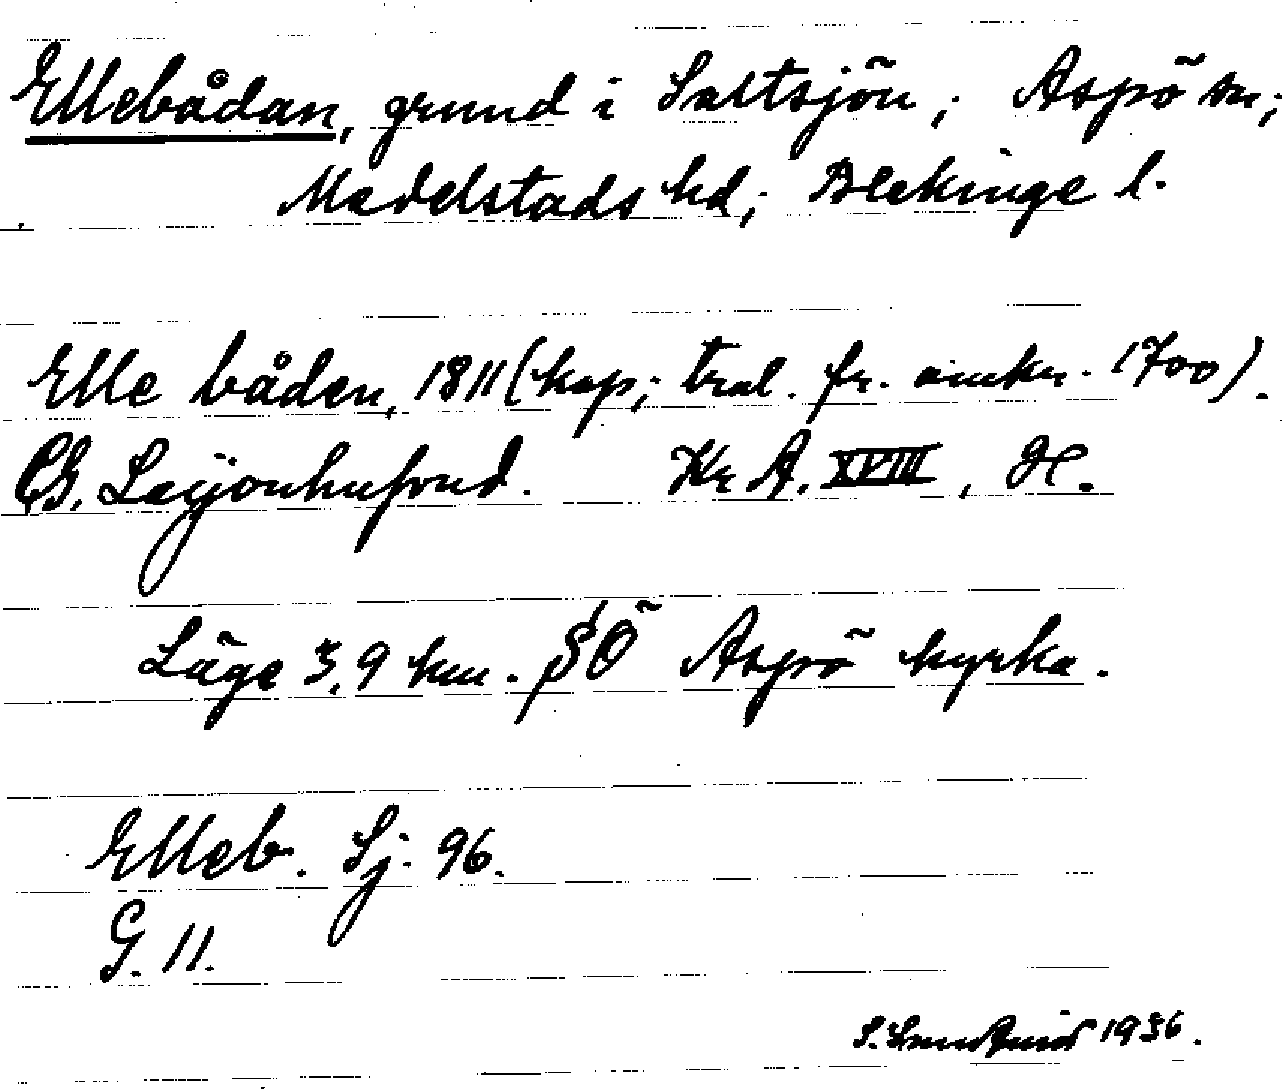 Ellebådan, grund i Saltsjön; Aspö sn;
Medelstads hd; Blekinge l.
Elle båden, 1811 (kop; trol. fr. omkr. 1700).
Ch. Leijonhufvud. Kr A. XVIII, H.
Läge 3,9 km. SÖ Aspö kyrka.
Elleb. Sj. 96.
G. 11.
S. 1936.